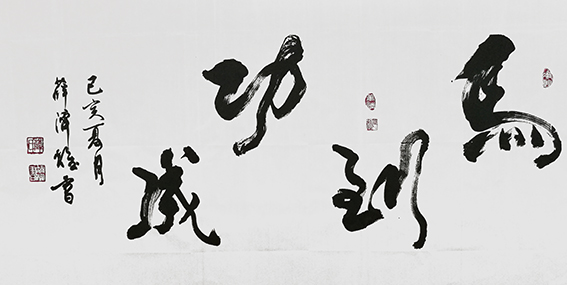 馬到功成
己亥夏月
薛 書